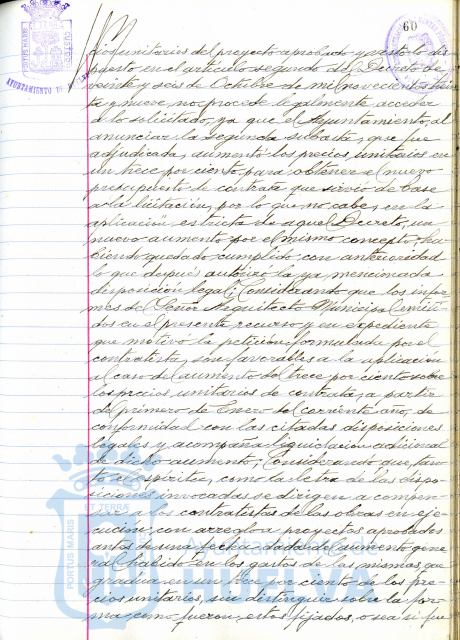 60
PORTUS MARIS
ET TERRÆ
CUSTODIA
AYUNTAMIENTO DE
cios unitarios del proyecto aprobado y visto lo dis-
puesto en el artículo segundo del Decreto de
veinte y seis de Octubre de mil novecientos trein-
ta y nueve, no procede legalmente acceder
a lo solicitado, ya que el Ayuntamiento, al
anunciar la segunda subasta, que fue
adjudicada, aumentó los precios unitarios en
un trece por ciento, para obtener el nuevo
presupuesto de contrata que sirvió de base
a la licitación, por lo que no cabe, en la
aplicación estricta de aquel Decreto, un
nuevo aumento por el mismo concepto, ha-
biendo quedado cumplido con anterioridad
lo que después autorizó la ya mencionada
disposición legal; Considerando que los infor-
mes del Señor Arquitecto Municipal emiti-
dos en el presente recurso y en expediente
que motivó la petición formulada por el
contratista, son favorables a la aplicación
al caso del aumento del trece por ciento sobre
los precios unitarios de contrata, a partir
del primero de Enero del corriente año, de
conformidad con las citadas disposiciones
legales y acompaña liquidación adicional
de dicho aumento; Considerando que tan-
to el espíritu, como la letra de las dispo-
siciones invocadas se dirigen a compen-
sar a los contratistas de las obras en eje-
cución, con arreglo a proyectos aprobados
antes de una fecha dada del aumento gene-
ral habido en los gastos de las mismas, que
gradúa en un trece por ciento de los pre-
cios unitarios, sin distinguir sobre la for-
ma como fueron estos fijados, o sea si fue
PORTUS MARIS
ET TERRÆ
Ayuntamiento de